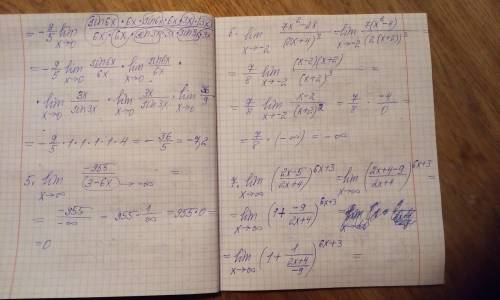 = -9/5 lim x→0 (sin6x · 6x · sin6x · 6x · 3x · 3x)/(6x · 6x · sin3x · 3x · sin3x · 3x) =
= -9/5 lim x→0 sin6x/6x · lim x→0 sin6x/6x ·
· lim x→0 3x/sin3x · lim x→0 3x/sin3x · lim x→0 36/9
= -9/5 · 1 · 1 · 1 · 1 · 4 = -36/5 = -7,2
5. lim x→∞ -955/(3-6x) → -∞ =
= -955/-∞ = 955 · 1/∞ = 955 · 0 =
= 0
6. lim x→-2 (7x² - 28)/(2x+4)³ = lim x→-2 7(x²-4)/(2(x+2))³
= 7/8 lim x→-2 (x-2)(x+2)/(x+2)³ =
= 7/8 lim x→-2 (x-2)/(x+2)² = 7/8 · -4/0 =
= 7/8 · (-∞) = -∞
7. lim x→∞ ((2x-5)/(2x+4))^(6x+3) = lim x→∞ ((2x+4-9)/(2x+4))^(6x+3) =
= lim x→∞ (1 + -9/(2x+4))^(6x+3) =
= lim x→∞ (1 + 1/((2x+4)/-9))^(6x+3) =